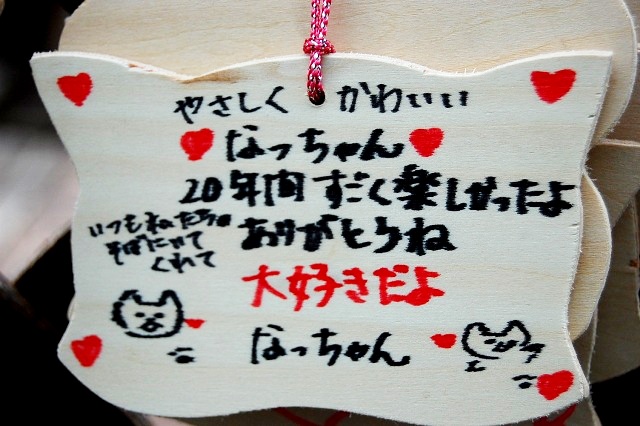 やさしく かわいい
なっちゃん
20年間すごく楽しかったよ
いつもねたちは
そばにいて
くれて
ありがとうね
大好きだよ
なっちゃん